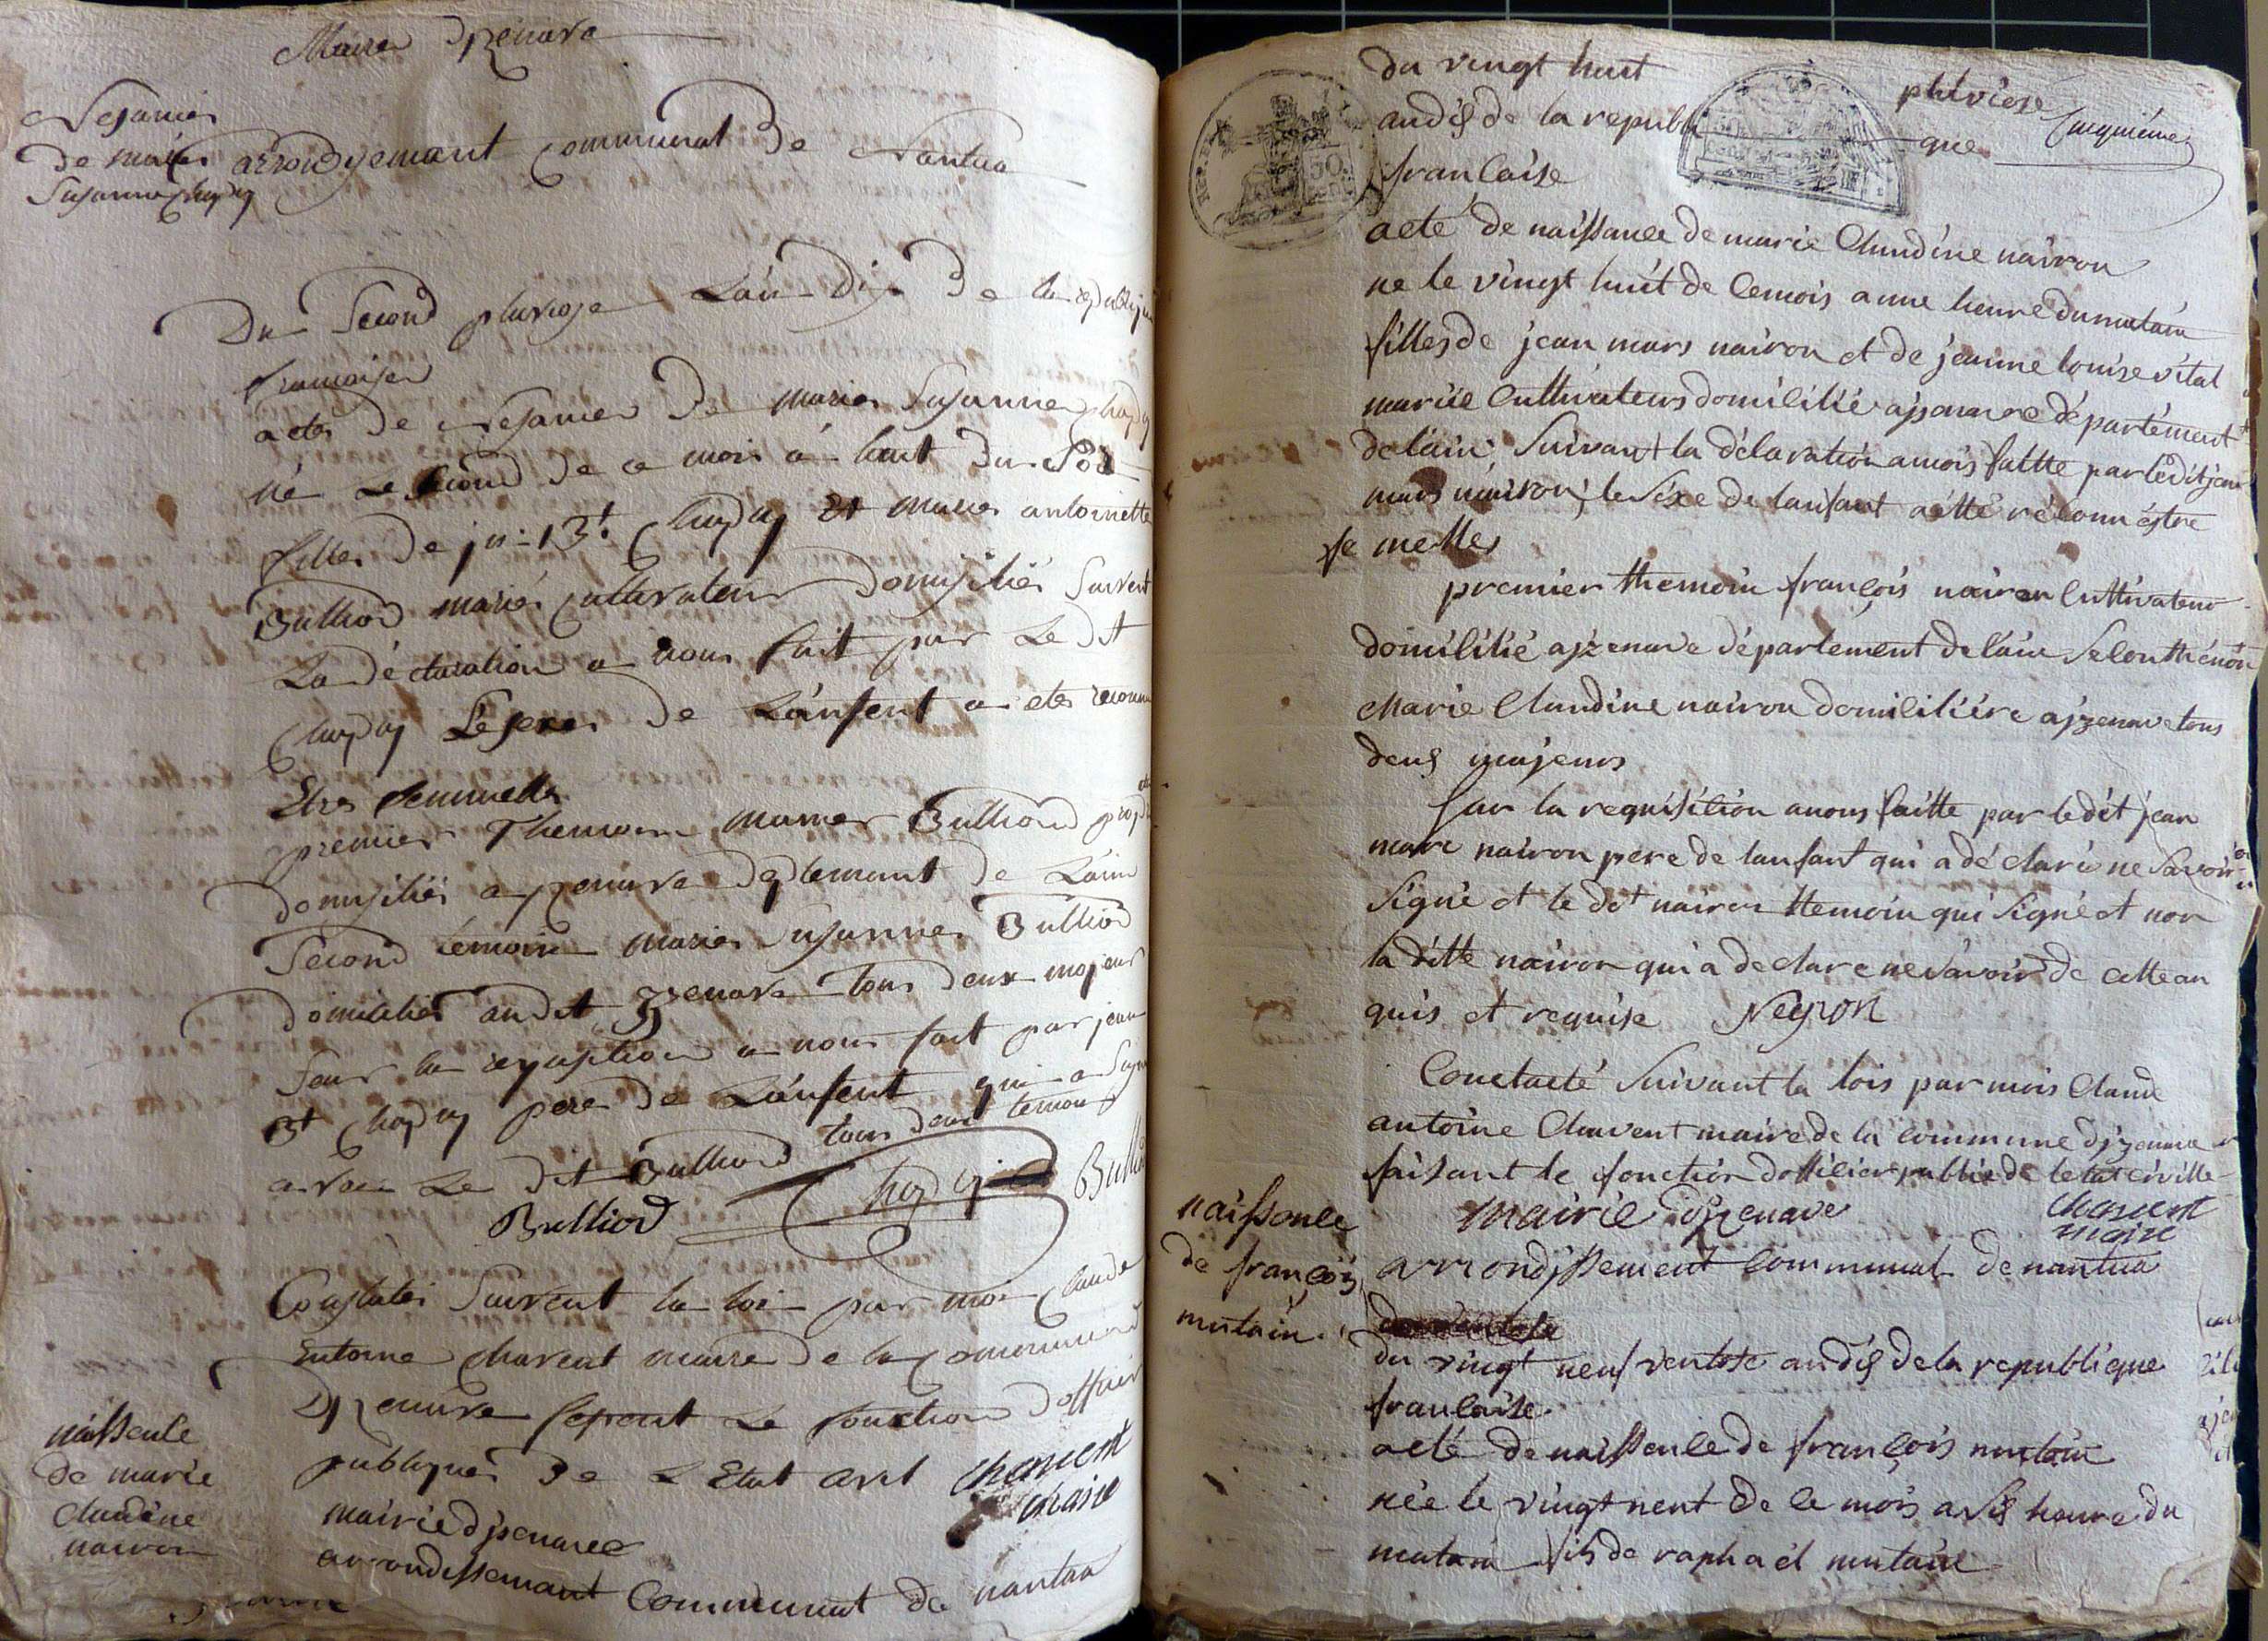 Maire Dizenave
Nesance
de marie
Susanne Chapuy
arrondysemant communal De Nantua
Du Second pluviose Lan Dix De la republique
francoise
acte De Nesance De marie Susanne Chapuy
né Le second De ce mois á huit Du Soir
fille De jn Bt Chapuy Et marie antoinette
Bulliod mariés Cultivateur Domysiliés Suivent
La déclaration a nous fait par Le Dit
Chapuy Le sexe De Lanfent a ete reconnu
Etre femmelle
premier Themoin Bulliod
domysiliés a yzenave deptement De Lain
Second témoin marie Susanne Bulliod
domicilies audit yzenave tous Deux majeur
Seur la requsition a nous fait par jean
Bt Chapuy pere De Lanfent qui a Signé
avec Le Dit Bulliod tous deux temoin
Bulliod Chapuy Bulliod
Constatés Suivent la loi par moi Claude
Entoine Chavent maire De la Commune
Dyzenave fesent Le fonction Dofficier
publique De L Etat civil Chavent
maire
naissence
de marie
claudine
nairon
mairie dizenave
arrondissemant Communal de nantua
du vingt huit pluviose
an dis de la republique
francaise
acte de naissance de marie Claudine nairon
ne le vingt huit de cemois a une heure dumatain
filles de jean mars nairon et de jeanne louise vital
mariie Cultivateurs domicilié a département
delain Suivant la déclaration amois faitte par ledit jean
mars nairon, le sexe de lanfant aétté réconn éstre
fe melles
premier themoin françois nairon Cultivateur
domicilié a jzenave département de lain Selon thémoin
Marie Claudine nairon domiciliére ajzenave tous
deus majeurs
Sur la requisition anous faitte par ledit jean
marc nairon pere de lanfant qui a déclaré ne Savoir
Signé et le dit nairon ttemoin qui signé et non
la ditte nairon qui a declaré ne Savoir de cette an
quis et requise Neyron
Constacté Suivant la lois par mois Claude
antoine Chavent maire de la commune djzenave
faisant le fonction dofficier public de letat civille
mairie djzenave chavent
maire
naissence
de françois
mutain
arrondissement Communal de nantua
du vingt neuf ventose an dis de la republique
francaise
acté de naissence de françois mutain
née le vingt neut de ce mois a sis heure du
matain fils de raphaél mutain